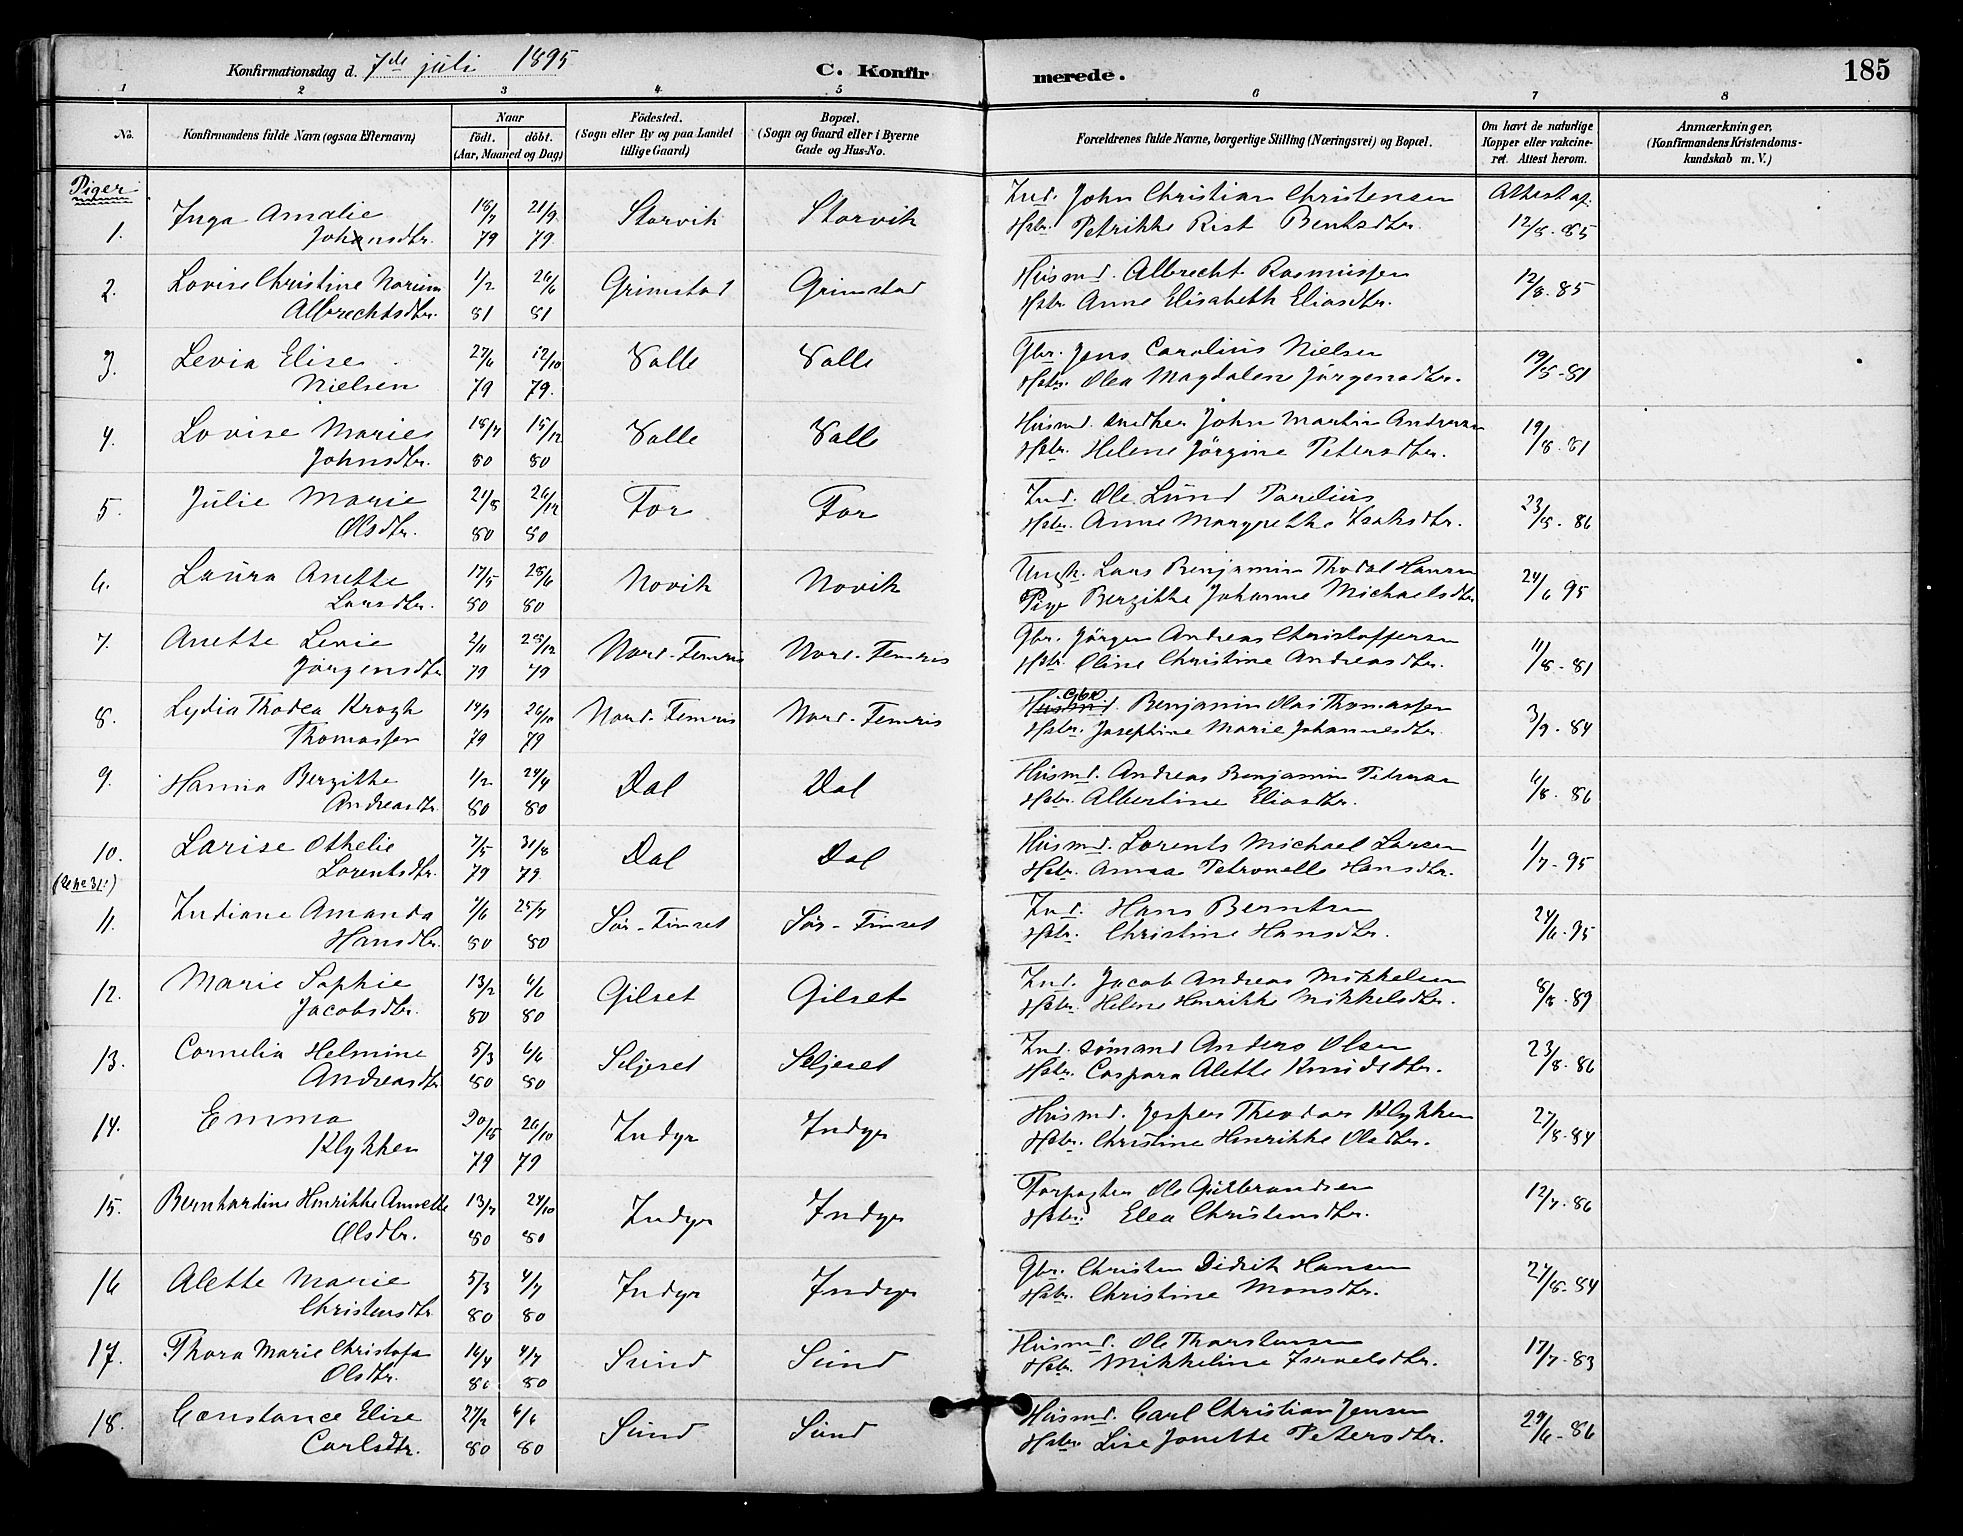 Konfirmationsdag d. 7de juli 1895
C. Konfirmerede.
185
1 2 3 4 5 6 7 8
No.
Konfirmandens fulde Navn (ogsaa Efternavn)
Naar
födt. döbt.
(Aar, Maaned og Dag)
Födested.
(Sogn eller By og paa Landet
tillige Gaard)
Bopæl.
(Sogn og Gaard eller i Byerne
Gade og Hus-No.
Forældrenes fulde Navne, borgerlige Stilling (Næringsvei) og Bopæl.
Om havt de naturlige
Kopper eller vakcine-
ret. Attest herom.
Anmærkninger.
(Konfirmandens Kristendoms-
kundskab m. V.)
Piger
1. Inga Amalie 18/7 21/9 Storvik Storvik Ind. John Christian Christensen Attest af
Johansdtr. 79 79 Hstr. Petrikke Rist Bentsdtr. 12/8-85
2. Lovise Christine 1/2 26/6 Grimstad Grimstad Husmd. Albrecht Rasmussen 12/8-85
Albrechtsdtr. 81 81 Hstr. Anne Elisabeth Eliasdtr.
3. Levia Elise 27/6 12/10 Valle Valle Gbr. Jens Carolius Nielsen 19/8-81
Nielsen 79 79. Hstr. Olea Magdalene Jörgensdtr.
4. Lovise Marie 18/7 15/12 Valle Valle Husmd. John Martin Andersen 19/8-81
Johnsdtr. 80 80 Hstr. Helene Jörgine Petersdtr.
5. Julie Marie 21/8 26/12 For For Ind. Ole Lund Parelius 23/8-86
Olsdtr. 80 80 Hstr. Anne Margrethe Isaksdtr.
6. Laura Anette 17/5 28/6 Novik Novik Ungk. Lars Benjamin Thodal Hansen 24/6 95
Larsdtr. 80 80 Pige Bergitte Johanne Michaelsdtr
7. Anette Levie 2/11 28/12 Nord-Femris Nord-Femris Gbr. Jörgen Andreas Christoffersen 11/8-81
Jörgensdtr 79 79 Hstr. Oline Christine Andreasdtr.
8. Lydia Thodea Krogh 14/9 26/10 Nord-Femris Nord-Femris Gbr Benjamin Olai Thomassen 3/9-84
Thomassen 79 79 Hstr. Josephine Marie Johannesdtr.
9. Hanna Bergitte 1/2 24/4 Dal Dal Husmd. Andreas Benjamin Petersen 6/8-86
Andreasdtr. 80 80 Hstr. Albertine Eliasdtr.
10. Larise Othelie 7/5 31/8 Dal Dal Husmd. Lorents Michael Larsen 1/7-95
Lorentsdtr. 79 79 Hstr. Anna Petronelle Hansdtr.
11. Indiane Amanda 1/6 25/7 Sör-Finset Sör-Finset Ind. Hans Berntsen 24/6-95
Hansdtr. 80 80 Hstr. Christine Hansdtr.
12. Marie Sophie 13/2 6/6 Gilset Gilset Ind. Jacob Andreas Mikkelsen 8/8-89
Jacobsdtr. 80 80 Hstr. Helene Henrikke Mikkelsdtr.
13. Cornelia Helmine 5/3 6/6 Seljeset Seljeset Ind. sömand Anders Olsen 23/8-86
Andreasdtr 80 80 Hstr. Caspara Alette Knudsdtr.
14. Emma 20/8 26/10 Indyr Indyr Husmd. Jesper Theodor Klykken 27/8-84
Klykken 79 79 Hstr. Christine Henrikke Olsdtr.
15. Bernhardine Henrikke Annette 13/7 24/10 Indyr Indyr Forpagter Ole Gulbrandsen 12/7-86
Olsdtr. 80 80 Hstr. Elea Christensdtr.
16 Alette Marie 5/3 4/7 Indyr Indyr Gbr. Christen Didrik Hansen 27/8-84
Christensdtr. 80 80 Hstr. Christine Monsdtr.
17. Thora Marie Christofa 16/4 4/7 Sund Sund Husmd. Ole Thorstensen 17/7-83
Olsdtr. 80 80 Hstr. Mikkeline Israelsdtr.
18. Constance Elise 27/2 6/6 Sund Sund Husmd. Carl Christian Jensen 29/6-86
Carlsdtr. 80 80 Hstr. Lise Jonette Petersdtr.